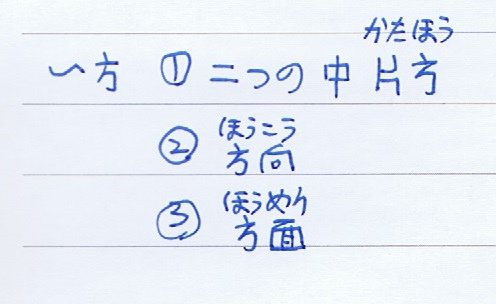 かたほう
～方 ① 二つの中 片方
ほうこう
② 方向
ほうめり
③ 方面